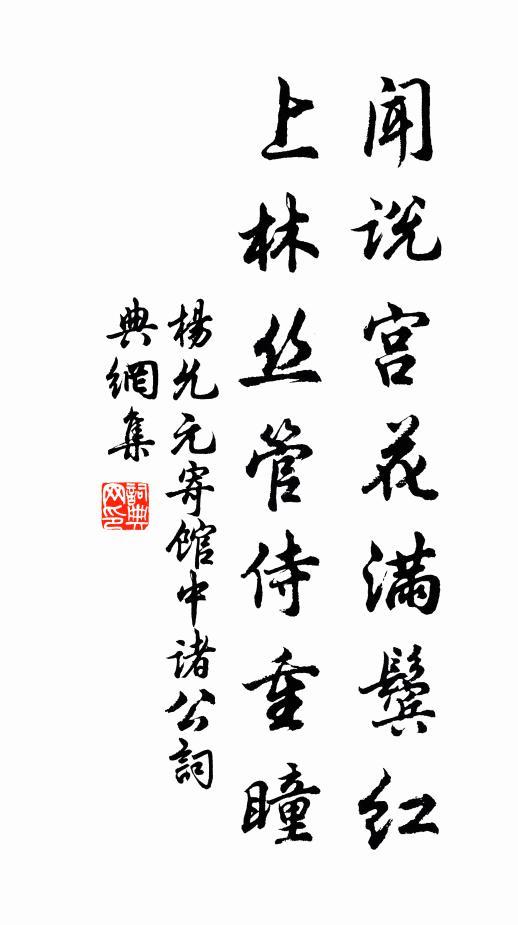 闻说宫花满鬓红
上林丝管侍重瞳
楊允元寄馆中诸公詞
典網集
詞典网印